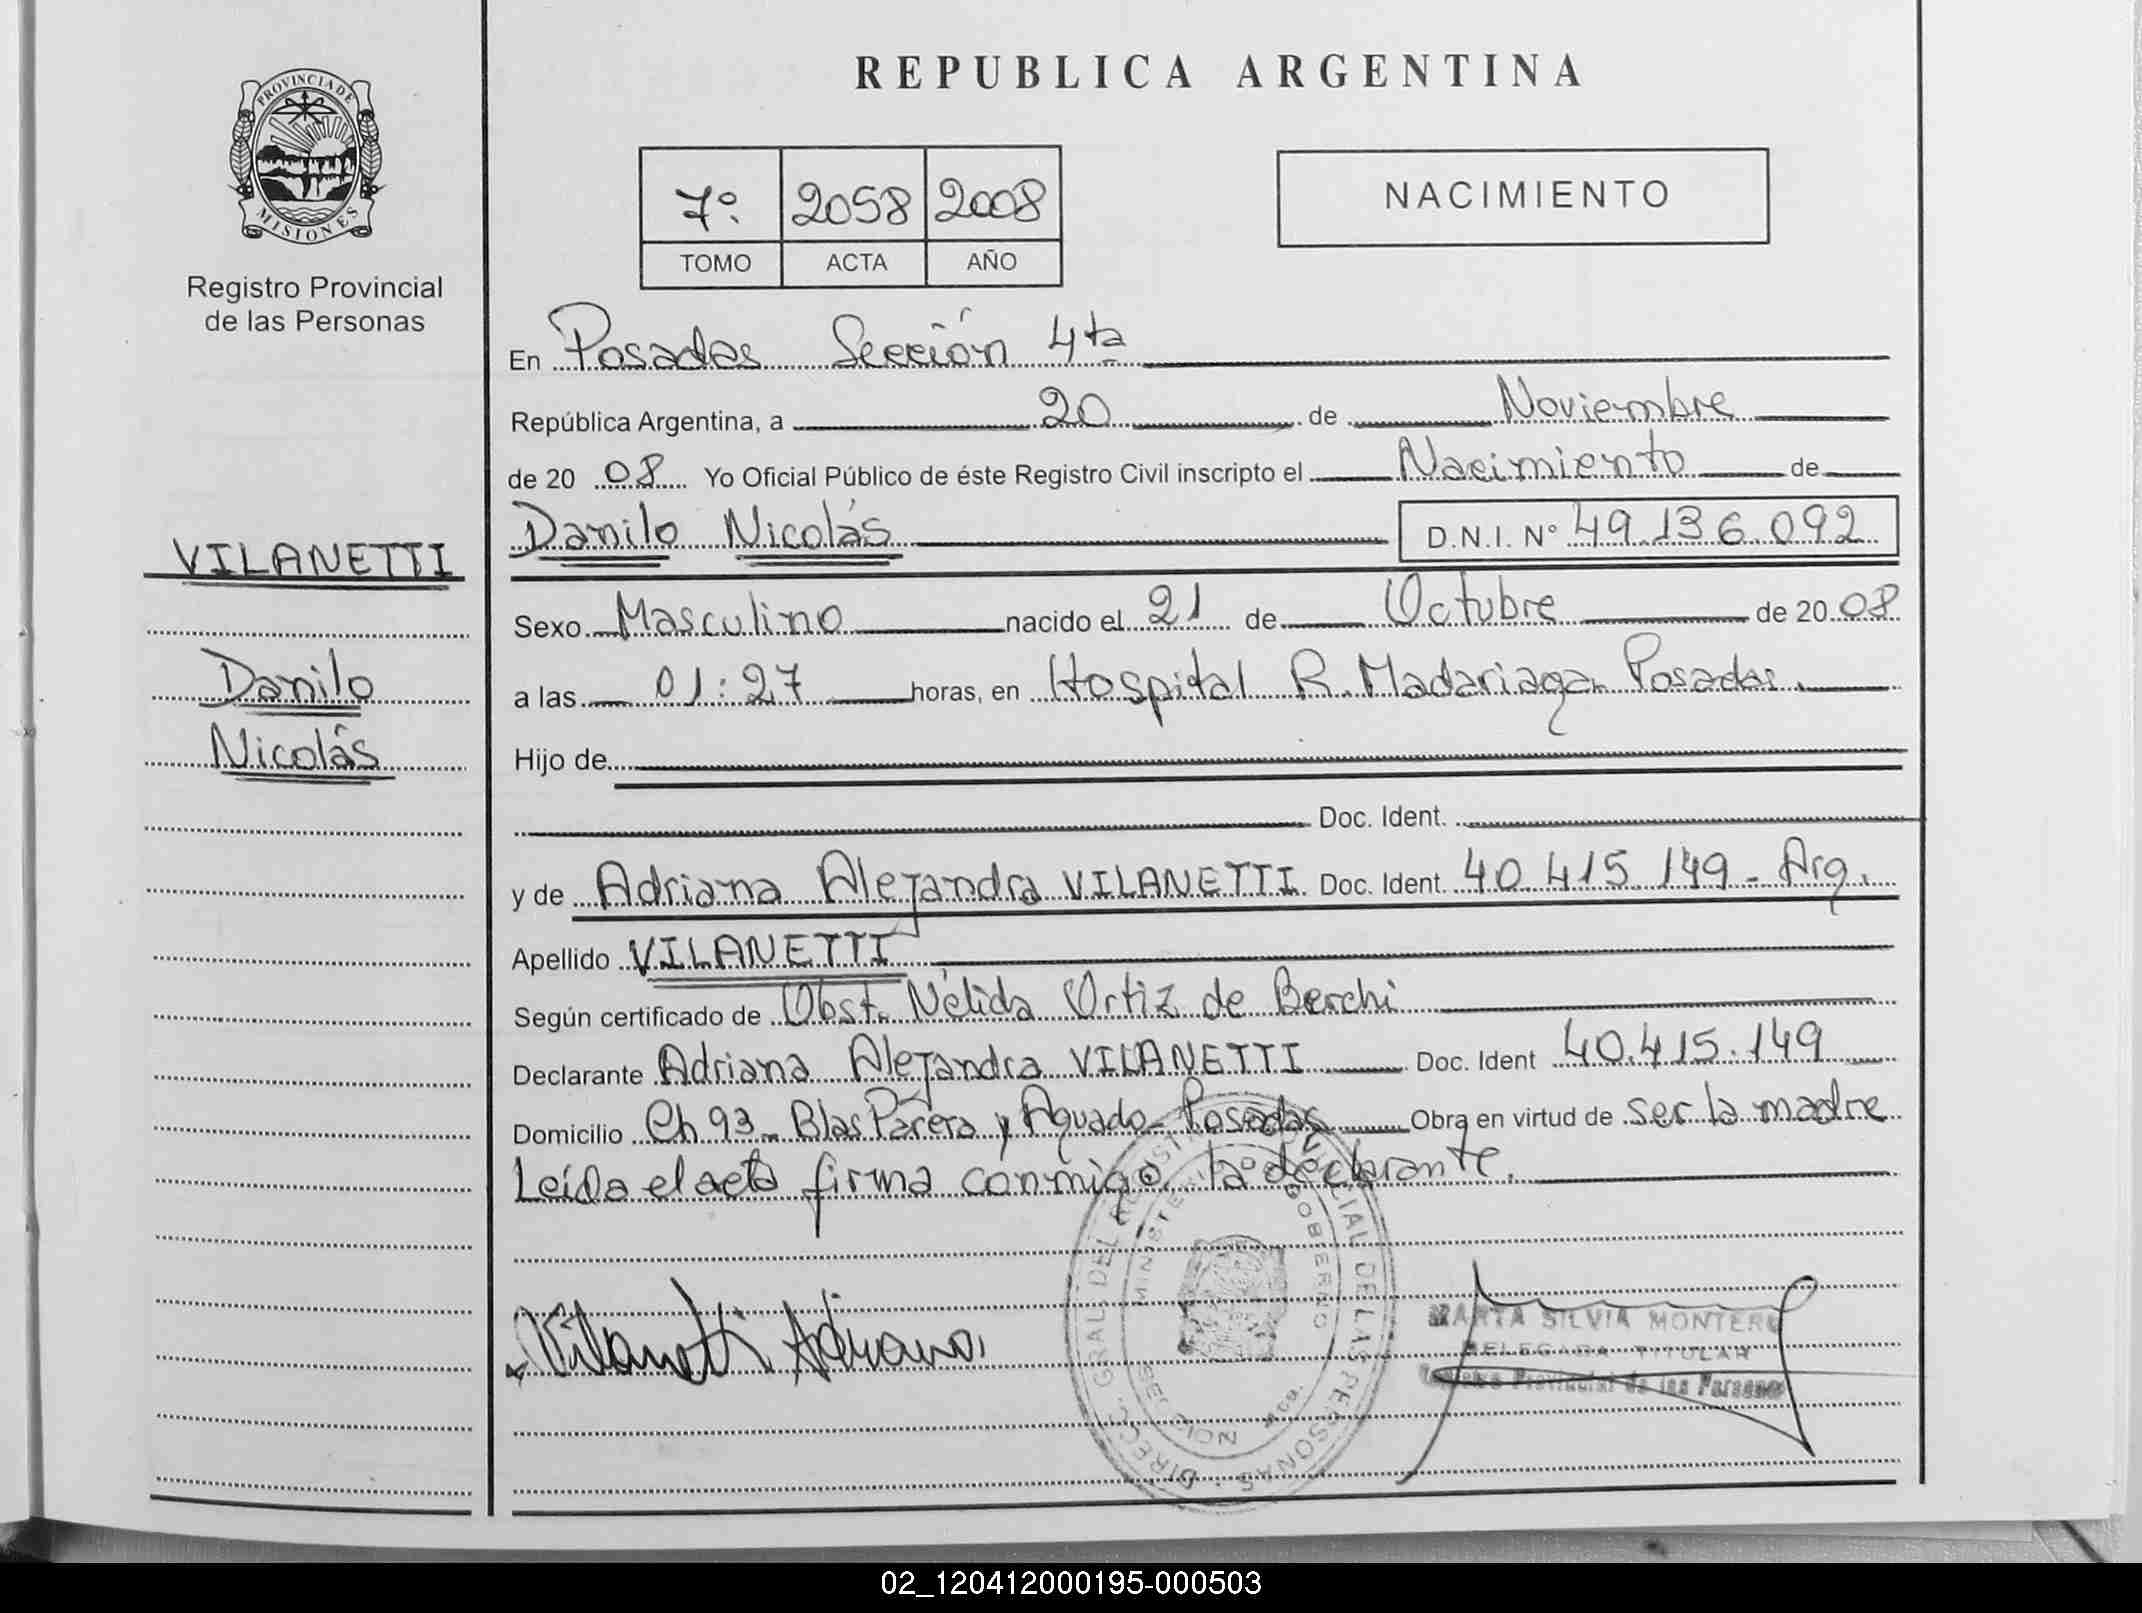 REPUBLICA ARGENTINA
PROVINCIA DE MISIONES
Registro Provincial
de las Personas
7º 2058 2008
TOMO ACTA AÑO
NACIMIENTO
En Posadas Sección 4ta
República Argentina, a 20 de Noviembre
de 20 08 Yo Oficial Público de éste Registro Civil inscripto el Nacimiento de
VILANETTI
Danilo
Nicolás
Danilo Nicolás D.N.I. Nº 49.136.092
Sexo Masculino nacido el 21 de Octubre de 20 08
a las 01:27 horas, en Hospital R. Madariaga - Posadas.
Hijo de
Doc. Ident.
y de Adriana Alejandra VILANETTI Doc. Ident. 40.415.149 - Arg.
Apellido VILANETTI
Según certificado de Obst. Nélida Ortiz de Berchi
Declarante Adriana Alejandra VILANETTI Doc. Ident 40.415.149
Domicilio Ch 93 - Blas Parera y Aguado - Posadas Obra en virtud de ser la madre
Leída el acta firma conmigo la declarante.
Vilanetti Adriana
DIRECC. GRAL. DEL REGISTRO PROVINCIAL DE LAS PERSONAS
MINISTERIO DE GOBIERNO
MARTA SILVIA MONTERO
DELEGADA TITULAR
Registro Provincial de las Personas
02_120412000195-000503